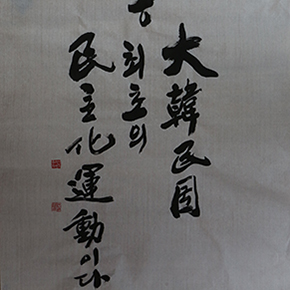 大韓民国
최초의
民主化運動이다